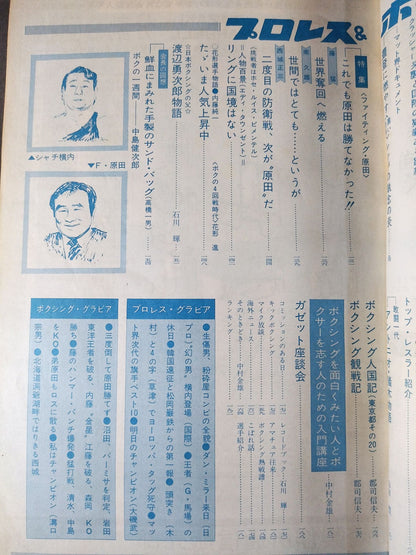 プロレス&
特集
〈ファイティング・原田〉
これでも原田は勝てなかった!!
世界奪回へ燃える
世間ではとても……というが
西城正三
二度目の防衛戦、次が“原田”だ
(挑戦者はホセ・ルイス・ピメンテル)
=人物百景(エディ・タウンゼント)=
リングに国境はない
〈ボクの4回戦時代〉花形 進
◇花形選手物語●内藤純一
たゞいま人気上昇中
☆日本ボクシングの父☆
渡辺勇次郎物語……石川 輝
鮮血にまみれた手製のサンド・バッグ(高橋一男)
ボクの一週間――中島健次郎
▲シャチ横内
▼F・原田
マット界ドキュメント
ップレスラー紹介
敢闘一代
ボクシング人国記(東京都その20)……郡司信夫
ボクシング観戦記……郡司信夫
ボクシングを面白くみたい人とボ
クサーを志す人のための入門講座
中村金雄
ガゼット座談会
コミッションのある日
キックボクシング
マイク放談
海外ニュース
そのときどき……中村金雄
ランキング
レコードブック……石川 輝
アマチュア往来
ボクシング熱戦譜
こぼれ話
選手紹介
プロレス・グラビア
●生傷男、粉砕屋コンビの全貌●ダン・ミラー来日(日
プロ)“幻の男”横内登場(国際)●王者(G・馬場)の
休日●韓国遠征と松岡巌鉄からの第一報●頭突き(木
村)と4の字(草津)でヨーロッパ・タッグ死守●マッ
ト界次代の旗手ベスト10●明日のチャンピオン(大磯武)
ボクシング・グラビア
●三度倒して原田勝てる●沼田、バーミサを判定、岩田
東洋王者を破る、内藤、金星、江藤を破る、森岡、KO
勝ち●藤のハンマー・パンチ爆発●猛打戦、清水、中島
をKO●男原田もロスに散る●私はチャンピオン(溝口
宗男)●北海道洞爺湖畔ではりきる西城